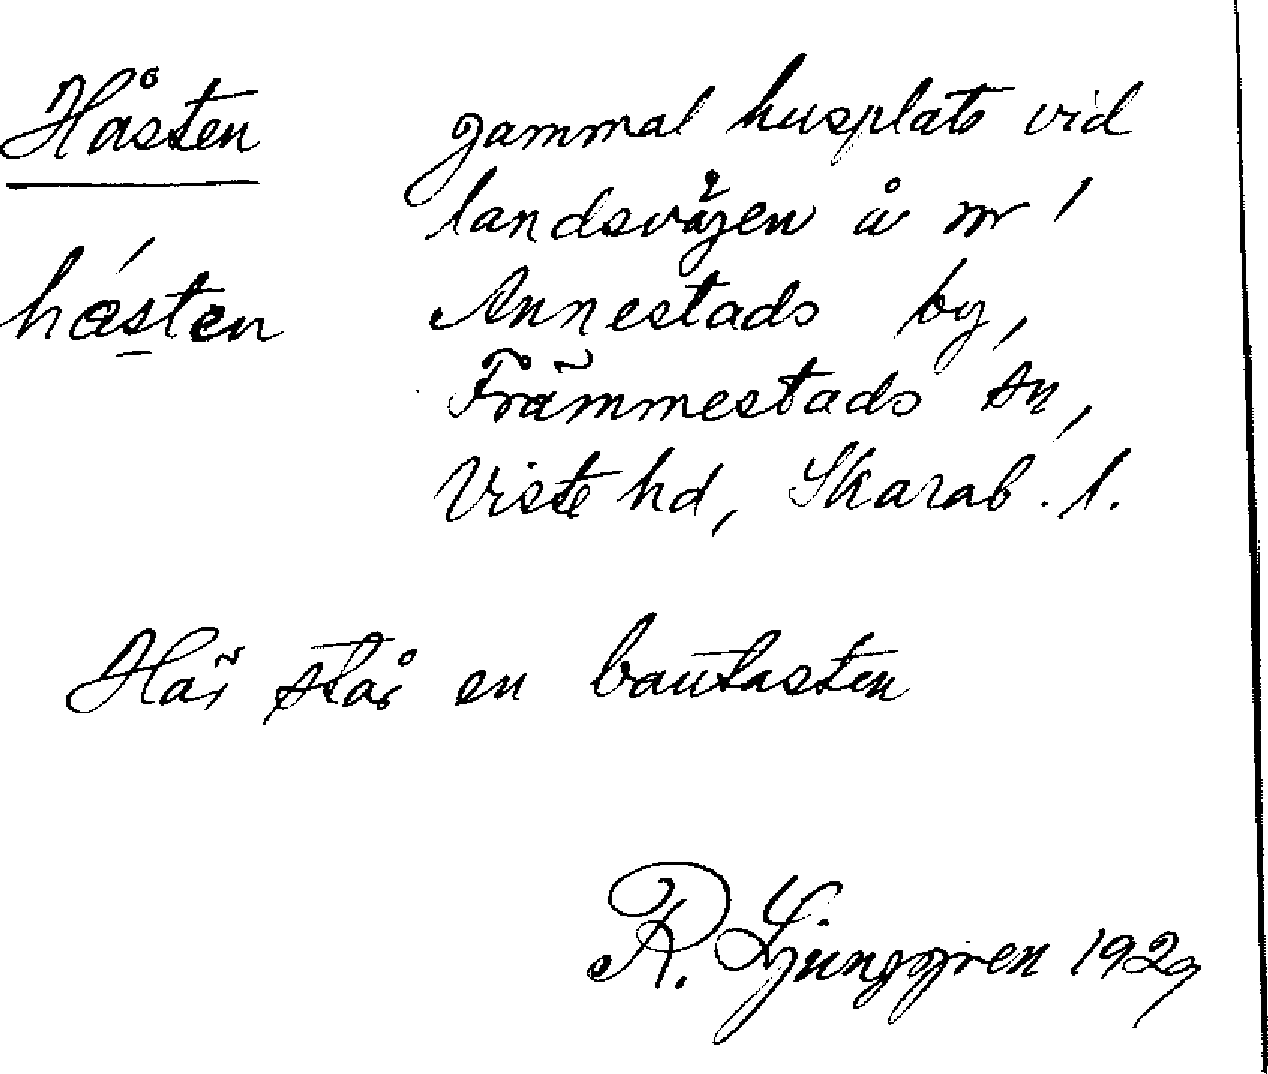 Håsten
gammal husplats vid
landsvägen å nr 1
håsten
Annestads by,
Främmestads sn,
Viste hd, Skarab. l.
Här står en bautasten
R. Ljunggren 1929